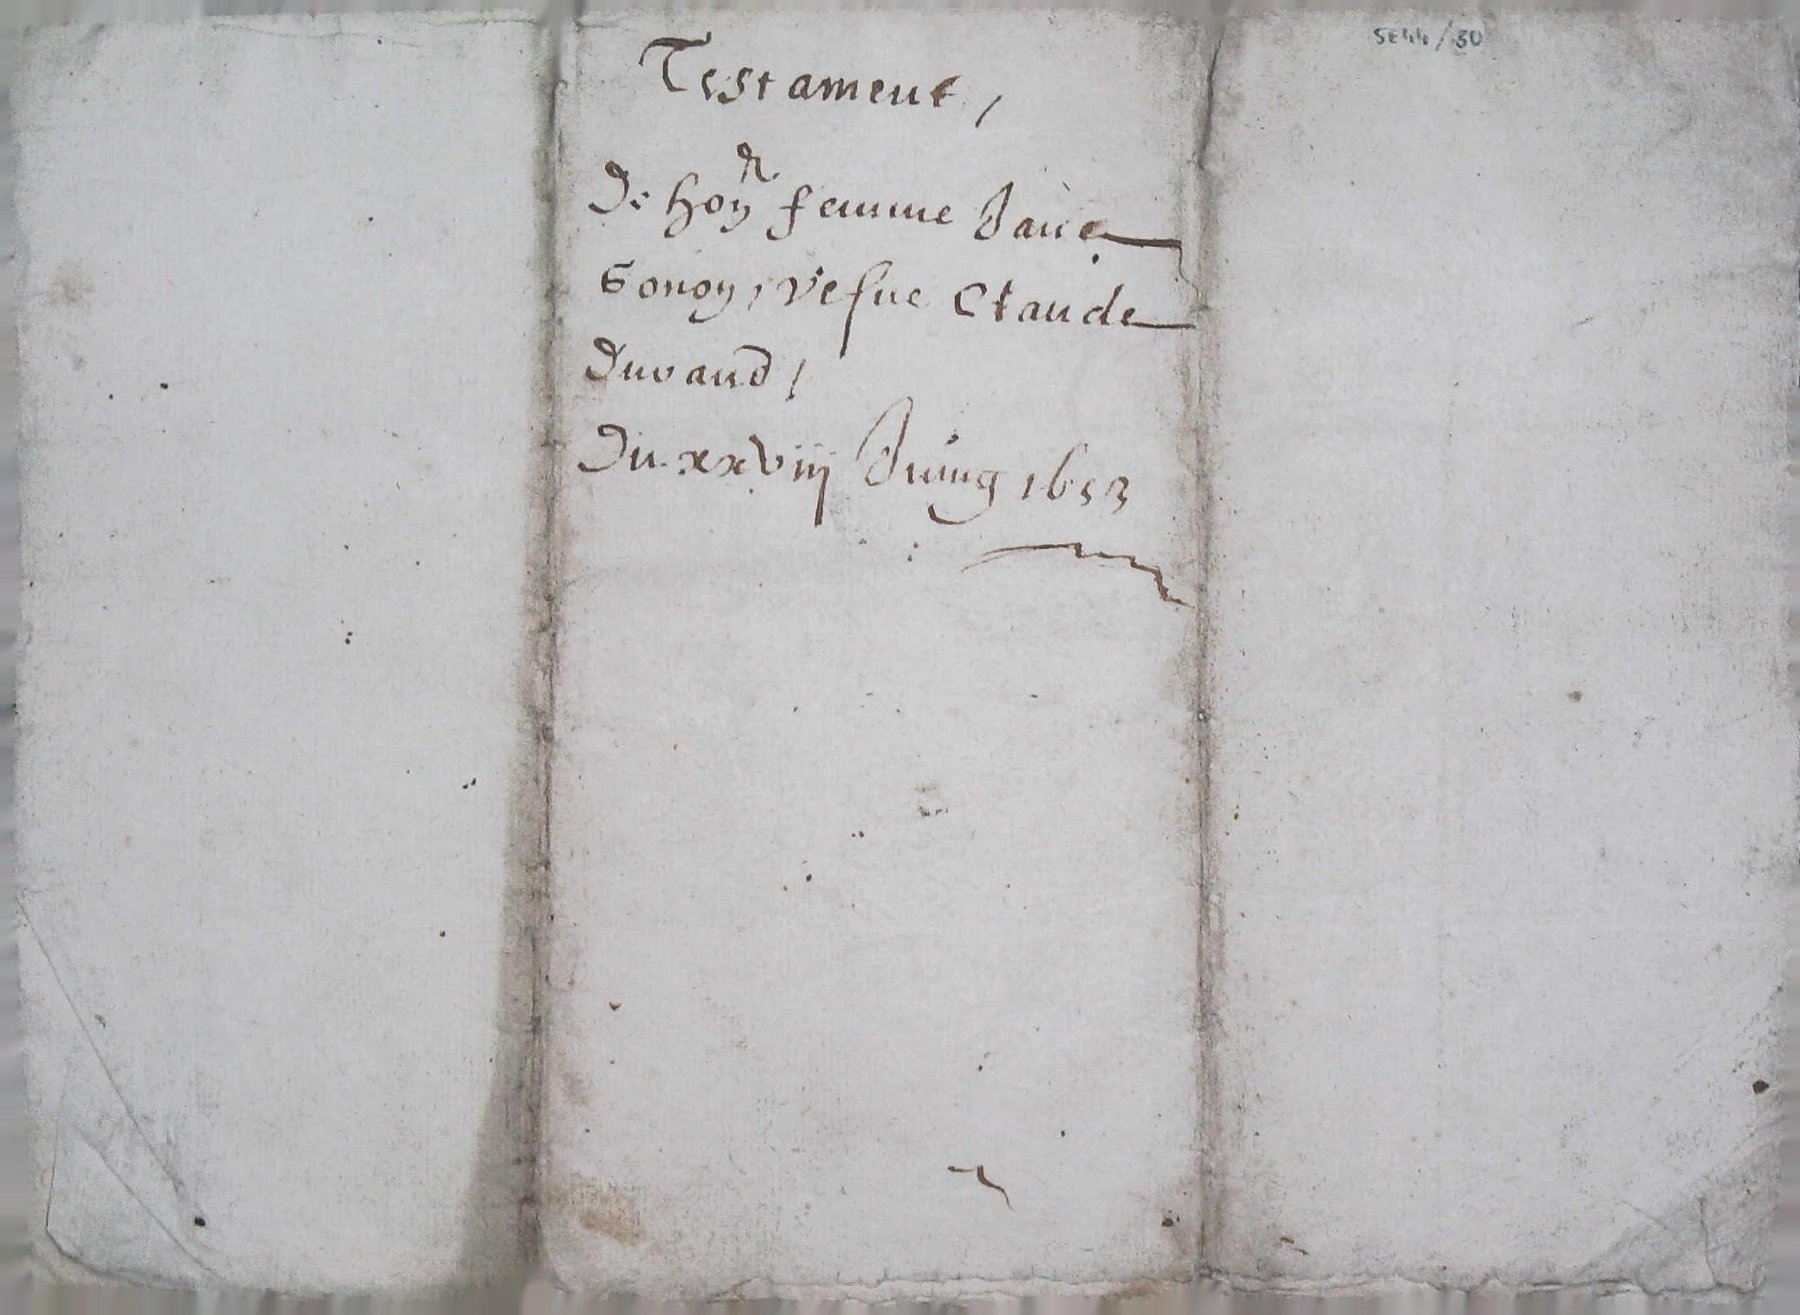 5E44/30
Testament,
De hon^r femme Janê
Gonoy, vefue Claude
Durand,
Du xxviij Juing 1653